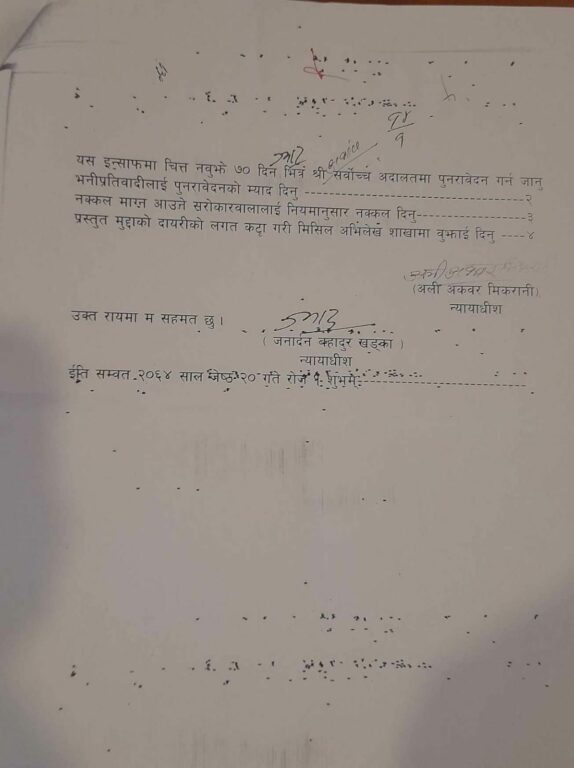 १४
१
यस इन्साफमा चित्त नवुझे ७० दिन भित्र श्री सर्वोच्च अदालतमा पुनरावेदन गर्न जानु
भनीप्रतिवादीलाई पुनरावेदनको म्याद दिनु ----------------------------------२
नक्कल माग्न आउने सरोकारवालालाई नियमानुसार नक्कल दिनु----------------३
प्रस्तुत मुद्दाको दायरीको लगत कट्टा गरी मिसिल अभिलेख शाखामा वुझाई दिनु ----४
(अली अकवर मिकरानी)
न्यायाधीश
उक्त रायमा म सहमत छु।
( जनार्दन वहादुर खड्का )
न्यायाधीश
ईति सम्वत २०६४ साल जेष्ठ २० गते रोज १ शुभम्---------------------------